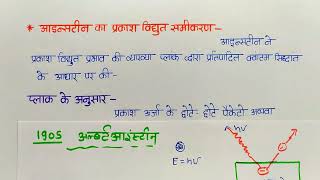 * आइन्सटीन का प्रकाश विद्युत समीकरण:-
आइन्सटीन ने
प्रकाश विद्युत प्रभाव की व्याख्या प्लांक द्वारा प्रतिपादित क्वाण्टम सिद्धान्त
के आधार पर की-
प्लांक के अनुसार-
प्रकाश ऊर्जा के छोटे-छोटे पैकेटो अथवा
1905 अल्बर्ट आइंस्टीन
E=hν
hν